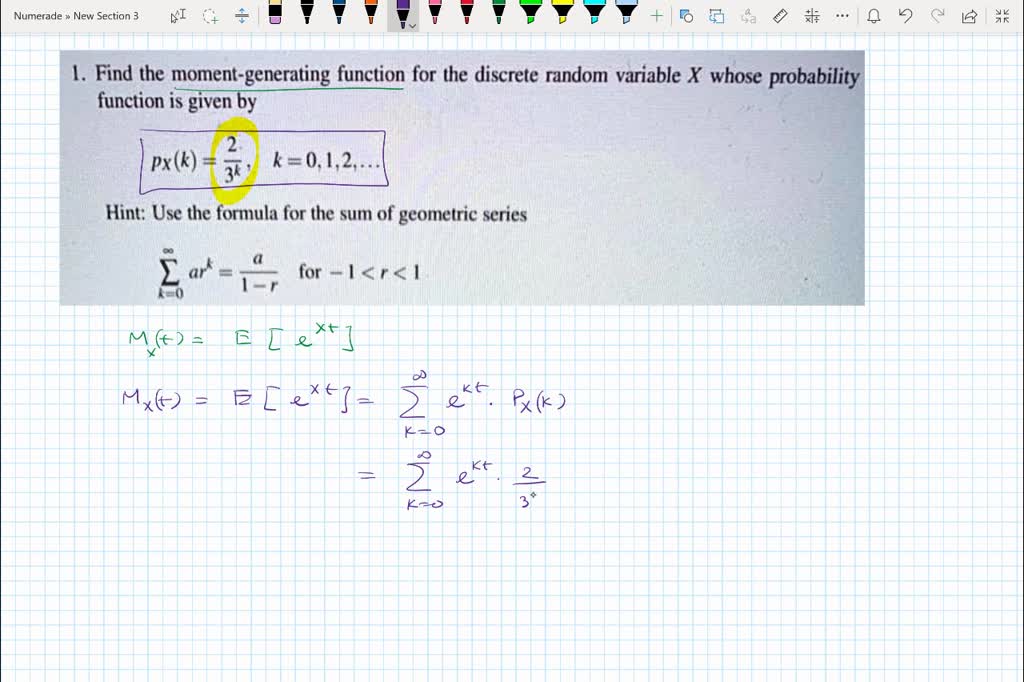 Numerade » New Section 3
1. Find the moment-generating function for the discrete random variable X whose probability
function is given by
pX(k) = 2/3^k, k = 0, 1, 2, ...
Hint: Use the formula for the sum of geometric series
∑_{k=0}^{∞} ar^k = a/(1 − r) for −1 < r < 1
M_x(t) = E [ e^{xt} ]
M_x(t) = E [ e^{xt} ] = ∑_{k=0}^{∞} e^{kt} · P_x(k)
= ∑_{k=0}^{∞} e^{kt} · 2/3